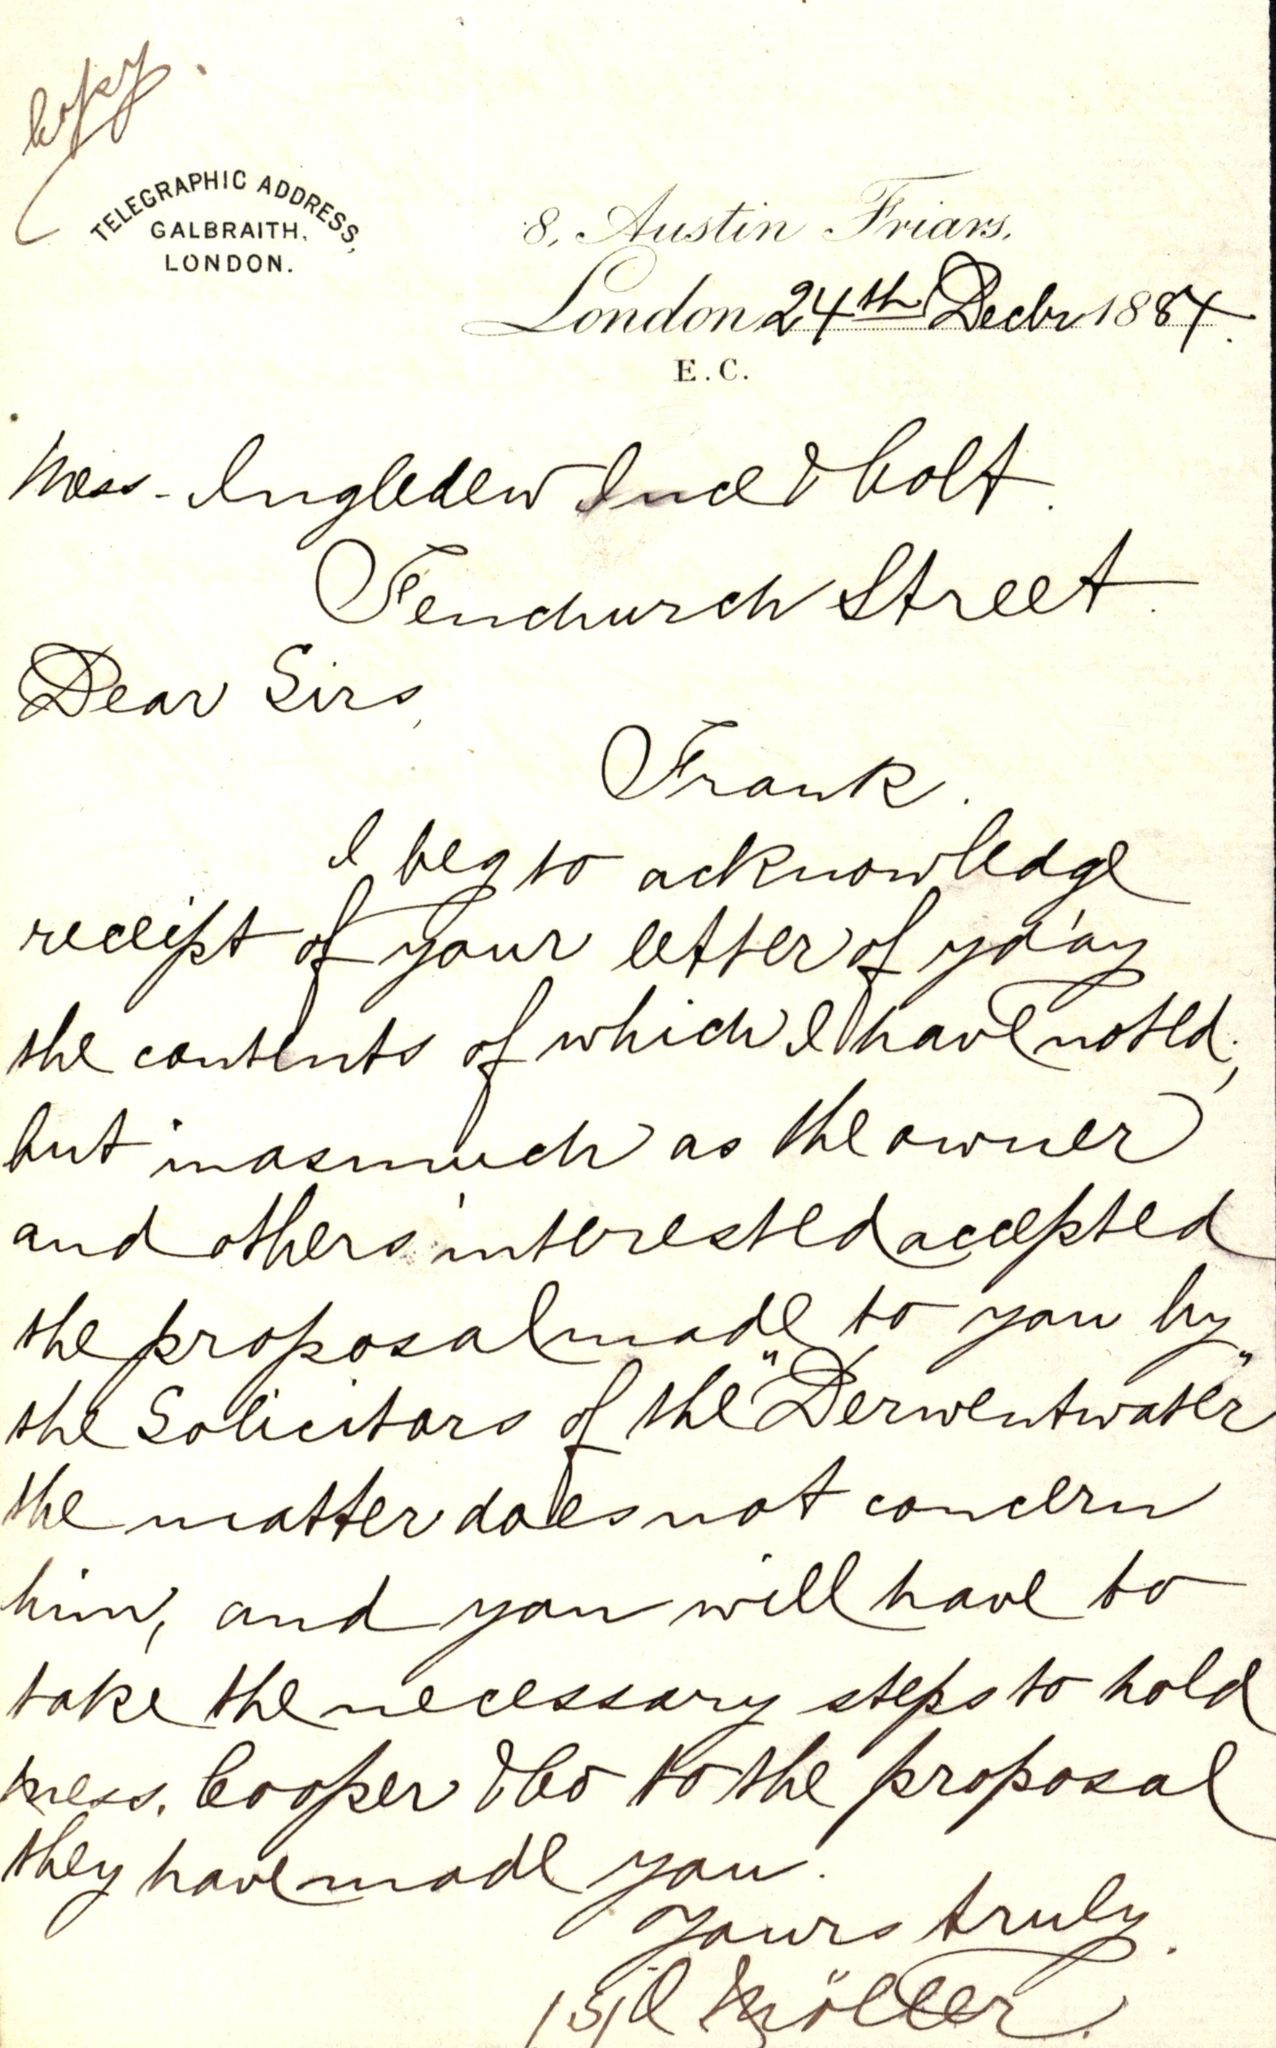 Copy.
TELEGRAPHIC ADDRESS,
GALBRAITH,
LONDON.
8, Austin Friars,
London 24th Decbr 1887.
E.C.
Mess. Ingledew Ince & Colt.
Fenchurch Street.
Dear Sirs,
Frank.
I beg to acknowledge
receipt of your letter of yd'ay
the contents of which I have noted;
but inasmuch as the owner
and others interested accepted
the proposal made to you by
the Solicitors of the "Derwentwater"
the matter does not concern
him, and you will have to
take the necessary steps to hold
Mess. Cooper & Co to the proposal
they have made you.
Yours truly.
Möller.